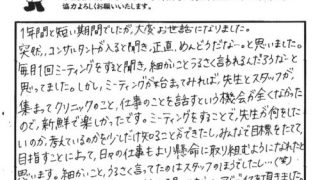 協力よろしくお願いいたします。
1年間と短い期間でしたが、大変お世話になりました。
突然、コンサルタントが入ると聞き、正直、めんどうだな…っと思いました。
毎月1回ミーティングをすると聞き、細かいことうるさく言われるんだろうなと
思ってました。しかし、ミーティングが始まってみれば、先生とスタッフが、
集まってクリニックのこと、仕事のことを話すという機会が全くなかった
ので、新鮮で楽しかったです。ミーティングをすることで、先生が何をした
いのか、考えているのかを少しだけ知ることができたし、みんなで目標をたてて、
目指すことによって、日々の仕事もより懸命に取り組むようになれたと
思います。細かいこと、うるさく言ってたのはスタッフのほうでしたし…(笑)
アドバイスを頂きました